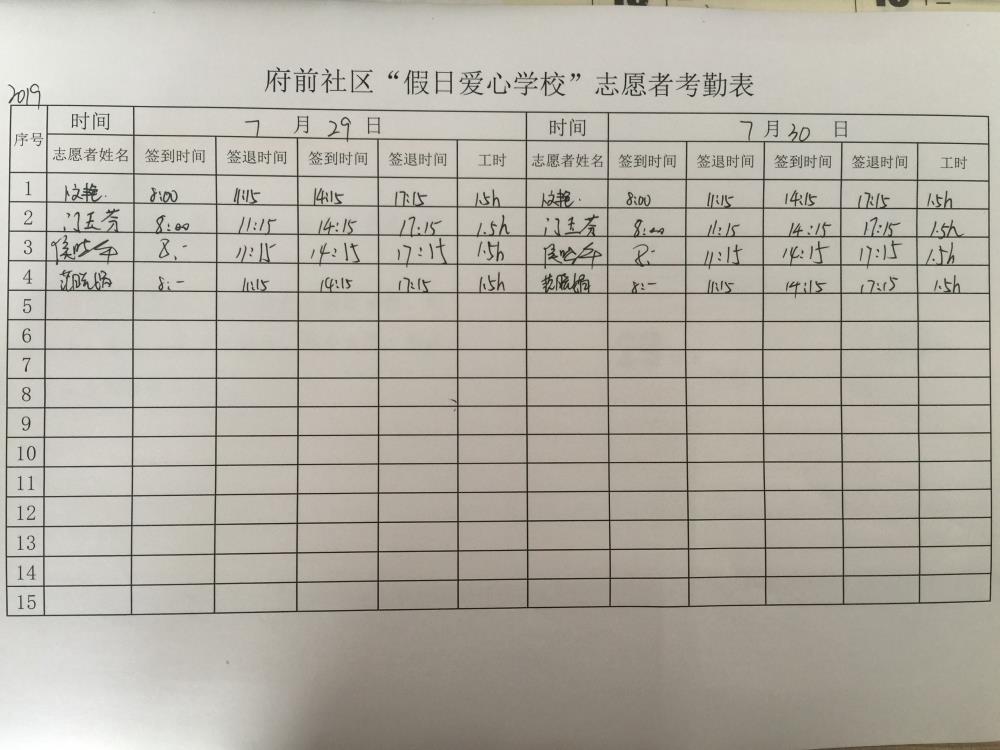 府前社区“假日爱心学校”志愿者考勤表
2019
序号 时间 7月29日 时间 7月30日
志愿者姓名 签到时间 签退时间 签到时间 签退时间 工时 志愿者姓名 签到时间 签退时间 签到时间 签退时间 工时
1 8:00 11:15 14:15 17:15 1.5h 8:00 11:15 14:15 17:15 1.5h
2 8:00 11:15 14:15 17:15 1.5h 8:00 11:15 14:15 17:15 1.5h
3 8:- 11:15 14:15 17:15 1.5h 8:- 11:15 14:15 17:15 1.5h
4 8:- 11:15 14:15 17:15 1.5h 8:- 11:15 14:15 17:15 1.5h
5
6
7
8
9
10
11
12
13
14
15